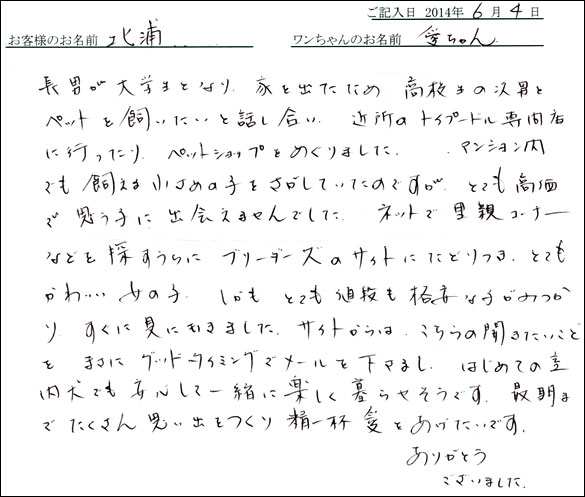 ご記入日 2014年 6月 4日
お客様のお名前 北浦 ワンちゃんのお名前 愛ちゃん
長男が大学生となり、家を出たため 高校生の次男と
ペットを飼いたいと話し合い、近所のトイプードル専門店
に行ったり、ペットショップをめぐりました。マンション内
でも飼える小さめの子をさがしていたのですが、とても高価
で思う子に出会えませんでした。ネットで里親コーナー
などを探すうちに ブリーダーズのサイトにたどりつき、とても
かわいい女の子、しかも とても値段も格安な子がみつか
り、すぐに見にいきました。サイトからは、こちらの聞きたいこと
を まさに グッドタイミングでメールを下さるし、はじめての室
内犬でも安心して一緒に楽しく暮らせそうです。最期ま
でたくさん思い出をつくり 精一杯 愛をあげたいです。
ありがとう
ございました。